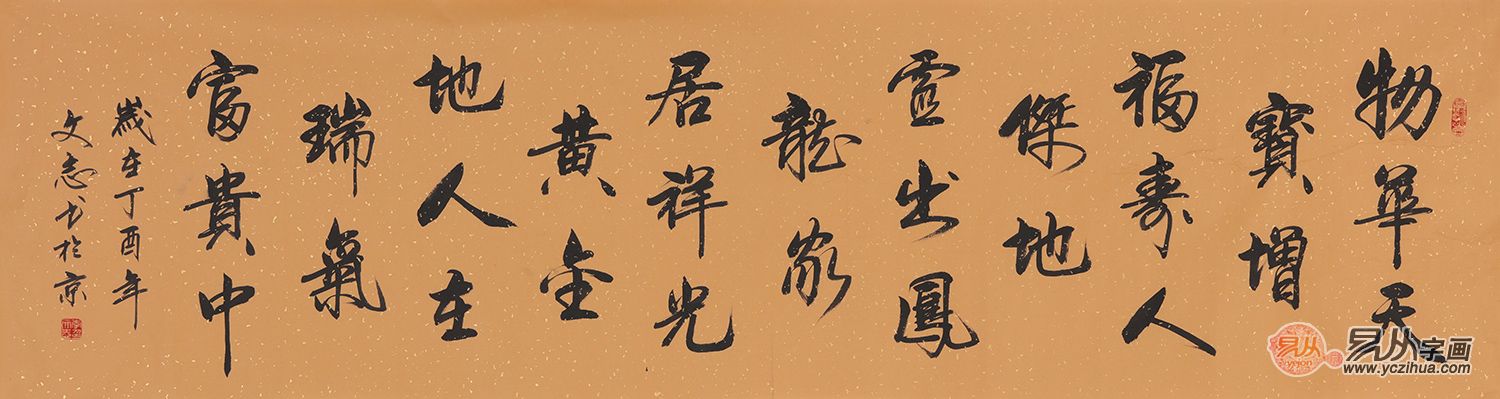 物華天
寳增
福壽人
傑地
靈出鳳
龍家
居祥光
黄金
地人在
瑞氣
富貴中
歲在丁酉年
文志书於京
易从字画
www.yczihua.com
yiyelon